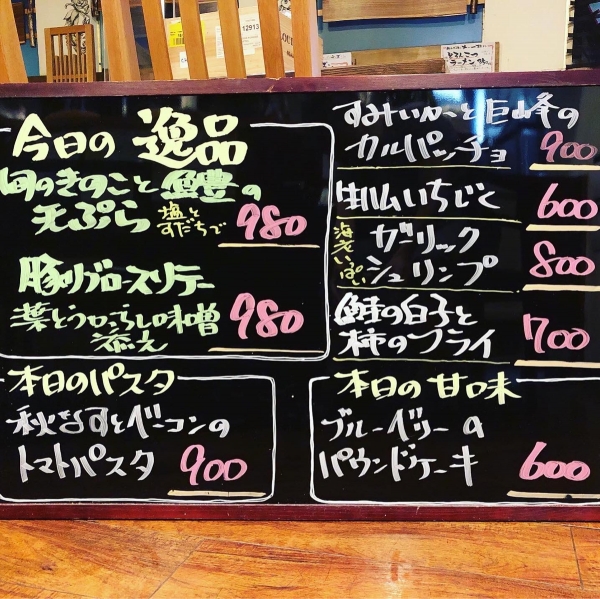 今日の逸品
旬のきのこと鱧の
天ぷら 塩と
すだちで 980
豚リブロースソテー
葉とうがらし味噌
添え 980
本日のパスタ
秋なすとベーコンの
トマトパスタ 900
すみいかと巨峰の
カルパッチョ 900
生ハムいちじく 600
海老いっぱい
ガーリック
シュリンプ 800
鮭の白子と
柿のフライ 700
本日の甘味
ブルーベリーの
パウンドケーキ 600
12913